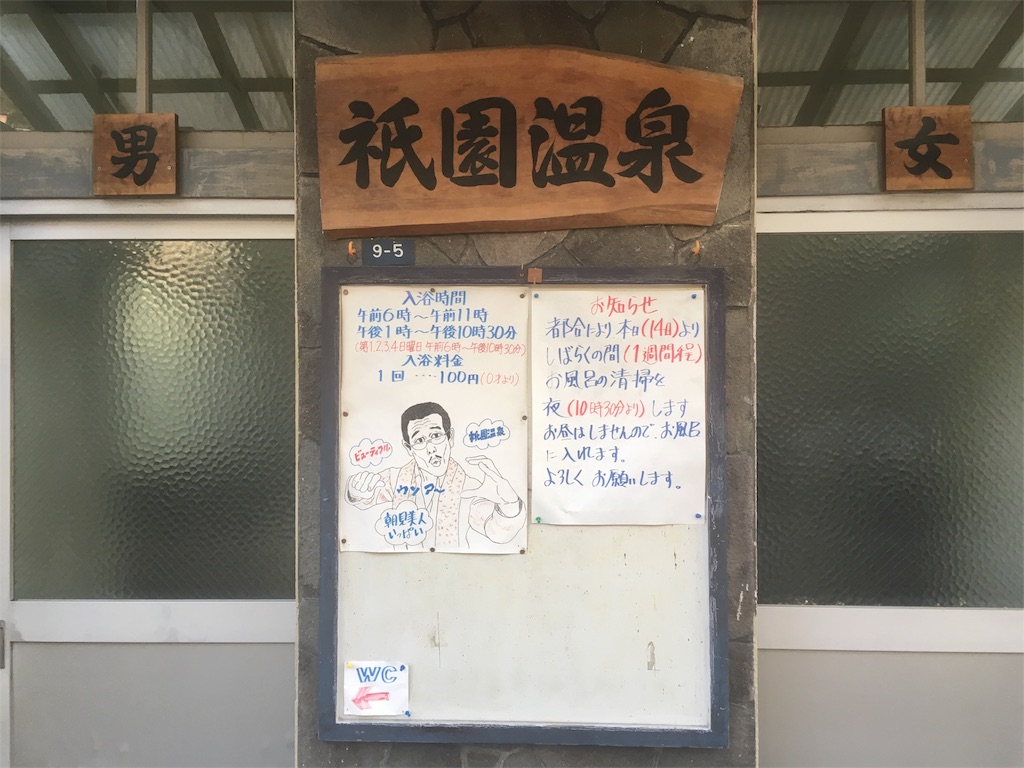 祇園温泉
男
女
9-5
入浴時間
午前6時～午前11時
午後1時～午後10時30分
(第1.2.3.4日曜日 午前6時～午後10時30分)
入浴料金
1回 ････100円(0才より)
ビューティフル
祇園温泉
ウンアー
朝見美人
いっぱい
お知らせ
都合により本日(14日)より
しばらくの間(1週間程)
お風呂の清掃を
夜(10時30分より)します
お昼はしませんので、お風呂
に入れます。
よろしくお願いします。
WC